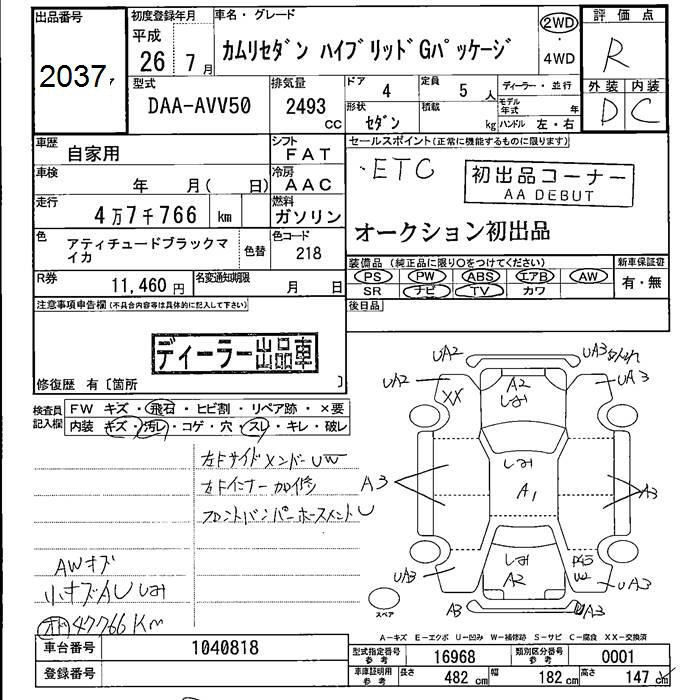 出品番号
2037
初度登録年月
平成
26 7月
車名・グレード
カムリセダン ハイブリッドGパッケージ
2WD
・
4WD
評価点
R
外装 内装
D C
型式
DAA-AVV50
排気量
2493
CC
ドア 4
定員 5 人
ディーラー・並行
形状
セダン
積載 kg
モデル年式 年
ハンドル 左・右
車歴
自家用
シフト
FAT
車検
年 月( 日)
冷房
AAC
走行
4万7千766 km
燃料
ガソリン
色
アティチュードブラックマイカ
色替
色コード
218
R券
11,460 円
名変通知期限
月 日
セールスポイント(正常に機能するものに限ります)
・ETC
初出品コーナー
AA DEBUT
オークション初出品
装備品(純正品に限り○をつけてください)
PS PW ABS エアB AW
SR ナビ TV カワ
新車保証書
有・無
後日品
注意事項申告欄(不具合内容等は具体的に記入して下さい)
ディーラー出品車
修復歴 有〔箇所 〕
検査員
記入欄
FW キズ・飛石・ヒビ割・リペア跡・×要
内装 キズ・汚レ・コゲ・穴・スレ・キレ・破レ
左Fサイドメンバー UW
左Fインナー 加修
フロントバンパーホースメント U
AWキズ
小キズAU しみ
47766 Km
UA2
UA3
UA2
XX
A2
しみ
UA3
A3
しみ
A1
A3
UA3
しみ
A2
W2
UA3
A3
UA3
スペア
A-キズ E-エクボ U-凹み W-補修跡 S-サビ C-腐食 XX-交換済
車台番号
1040818
登録番号
型式指定番号
参考
16968
類別区分番号
参考
0001
車庫証明用
参考
長さ 482 cm 幅 182 cm 高さ 147 cm